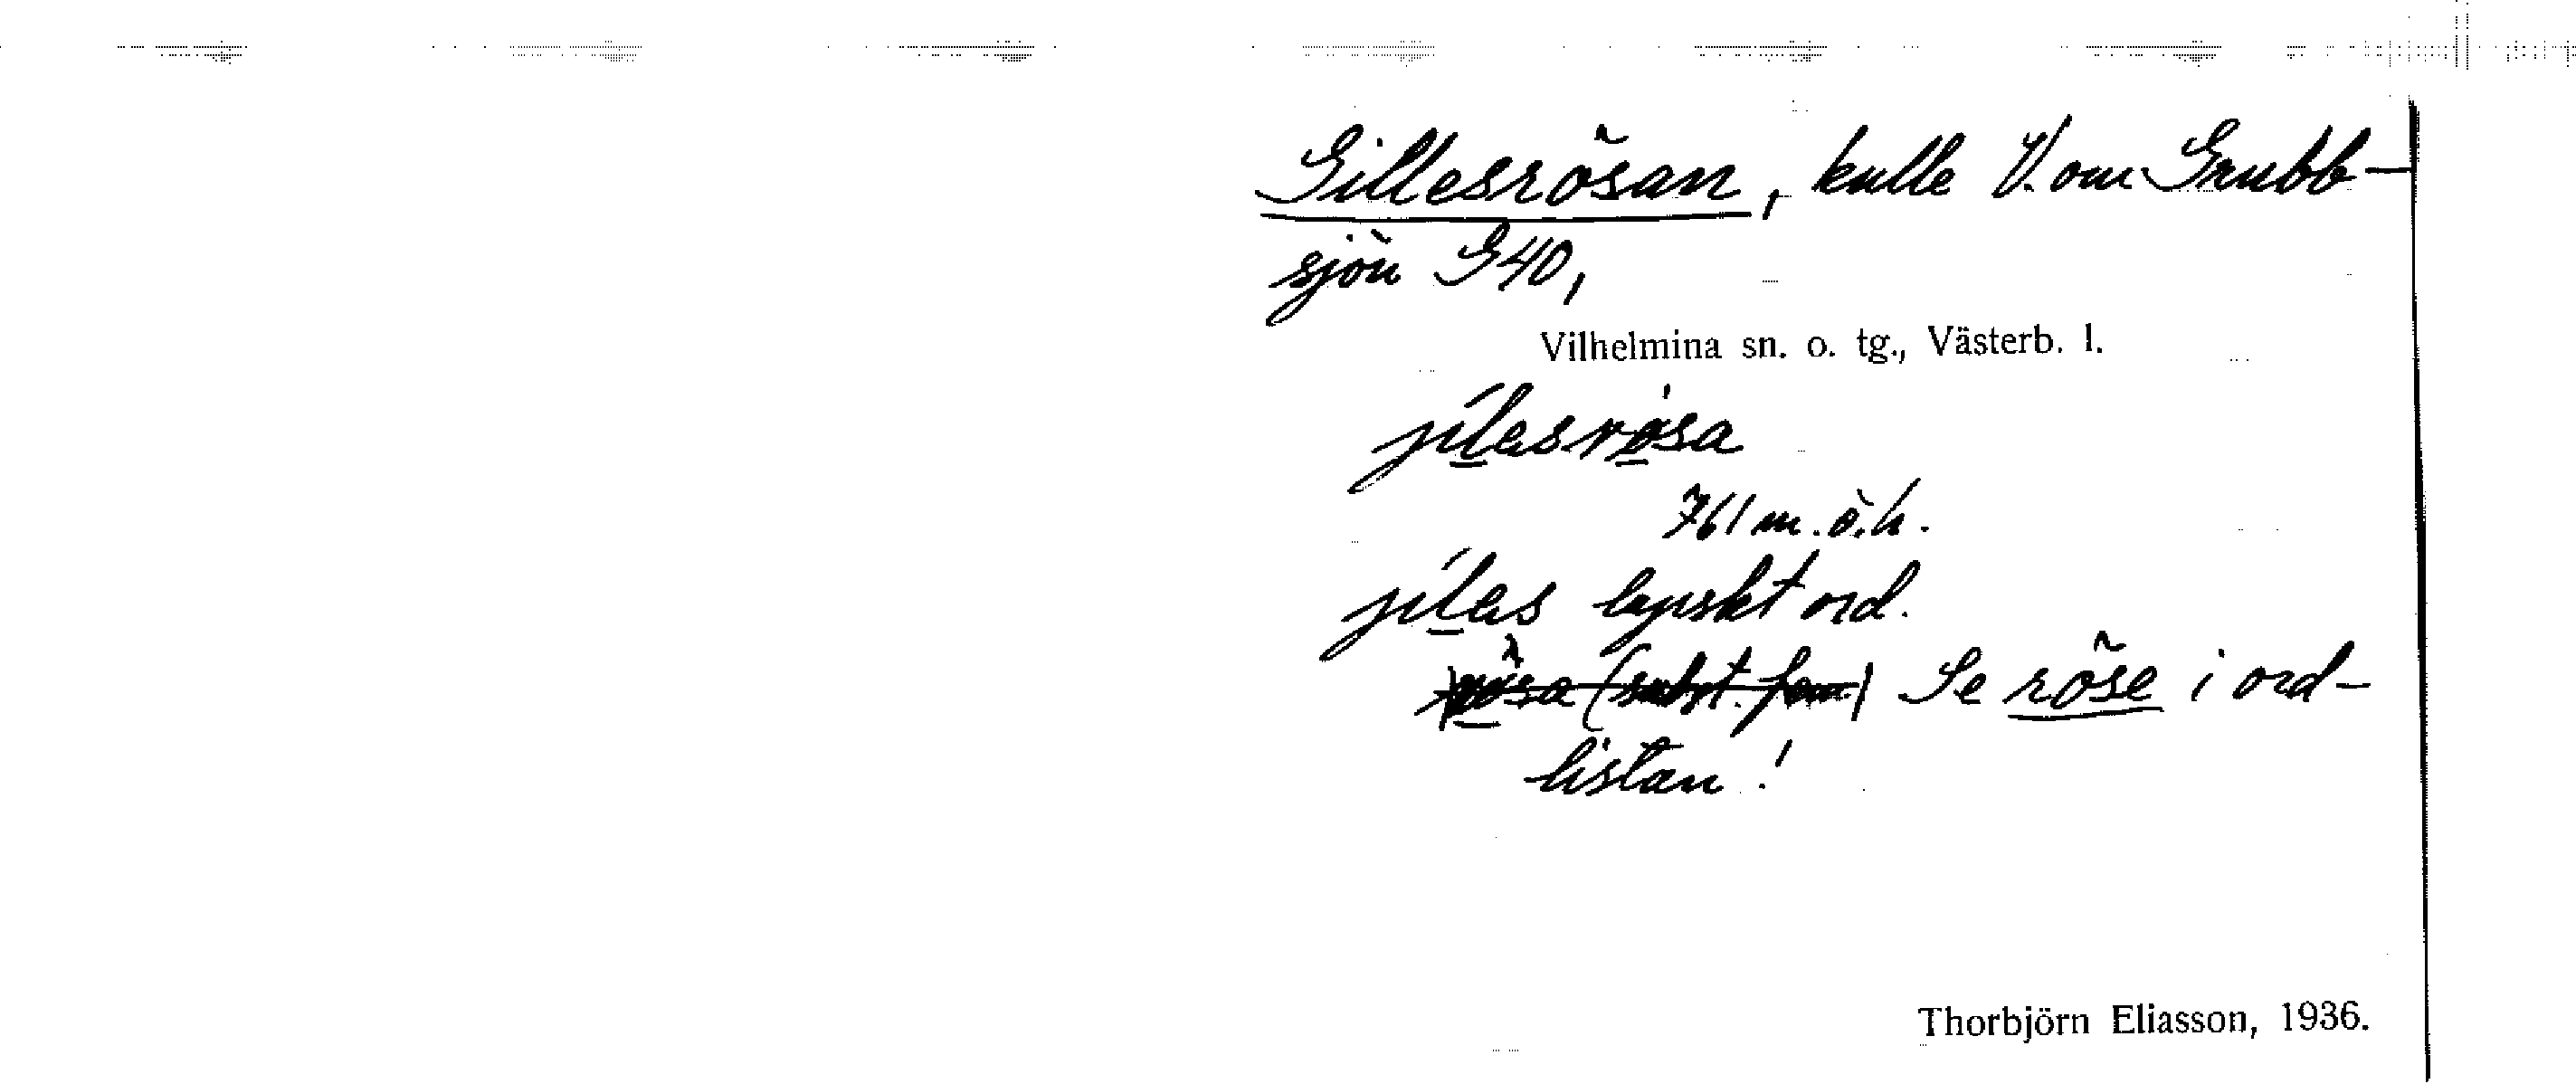 Gillesrösan, kulle V. om Grubb-
sjön G40,
Vilhelmina sn. o. tg., Västerb. l.
jílesrösa
761 m. ö. h.
jíles lapskt ord.
rösa (subst. fem.) Se röse i ord-
listan!
Thorbjörn Eliasson, 1936.